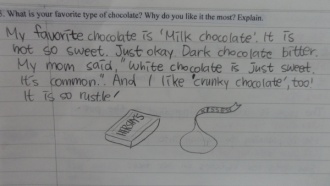 5. What is your favorite type of chocolate? Why do you like it the most? Explain.
My favorite chocolate is 'Milk chocolate'. It is
not so sweet. Just okay. Dark chocolate bitter.
My mom said, "White chocolate is just sweet.
It's common.". And I like 'crunky chocolate', too!
It is so rustle!
HERSHEY'S